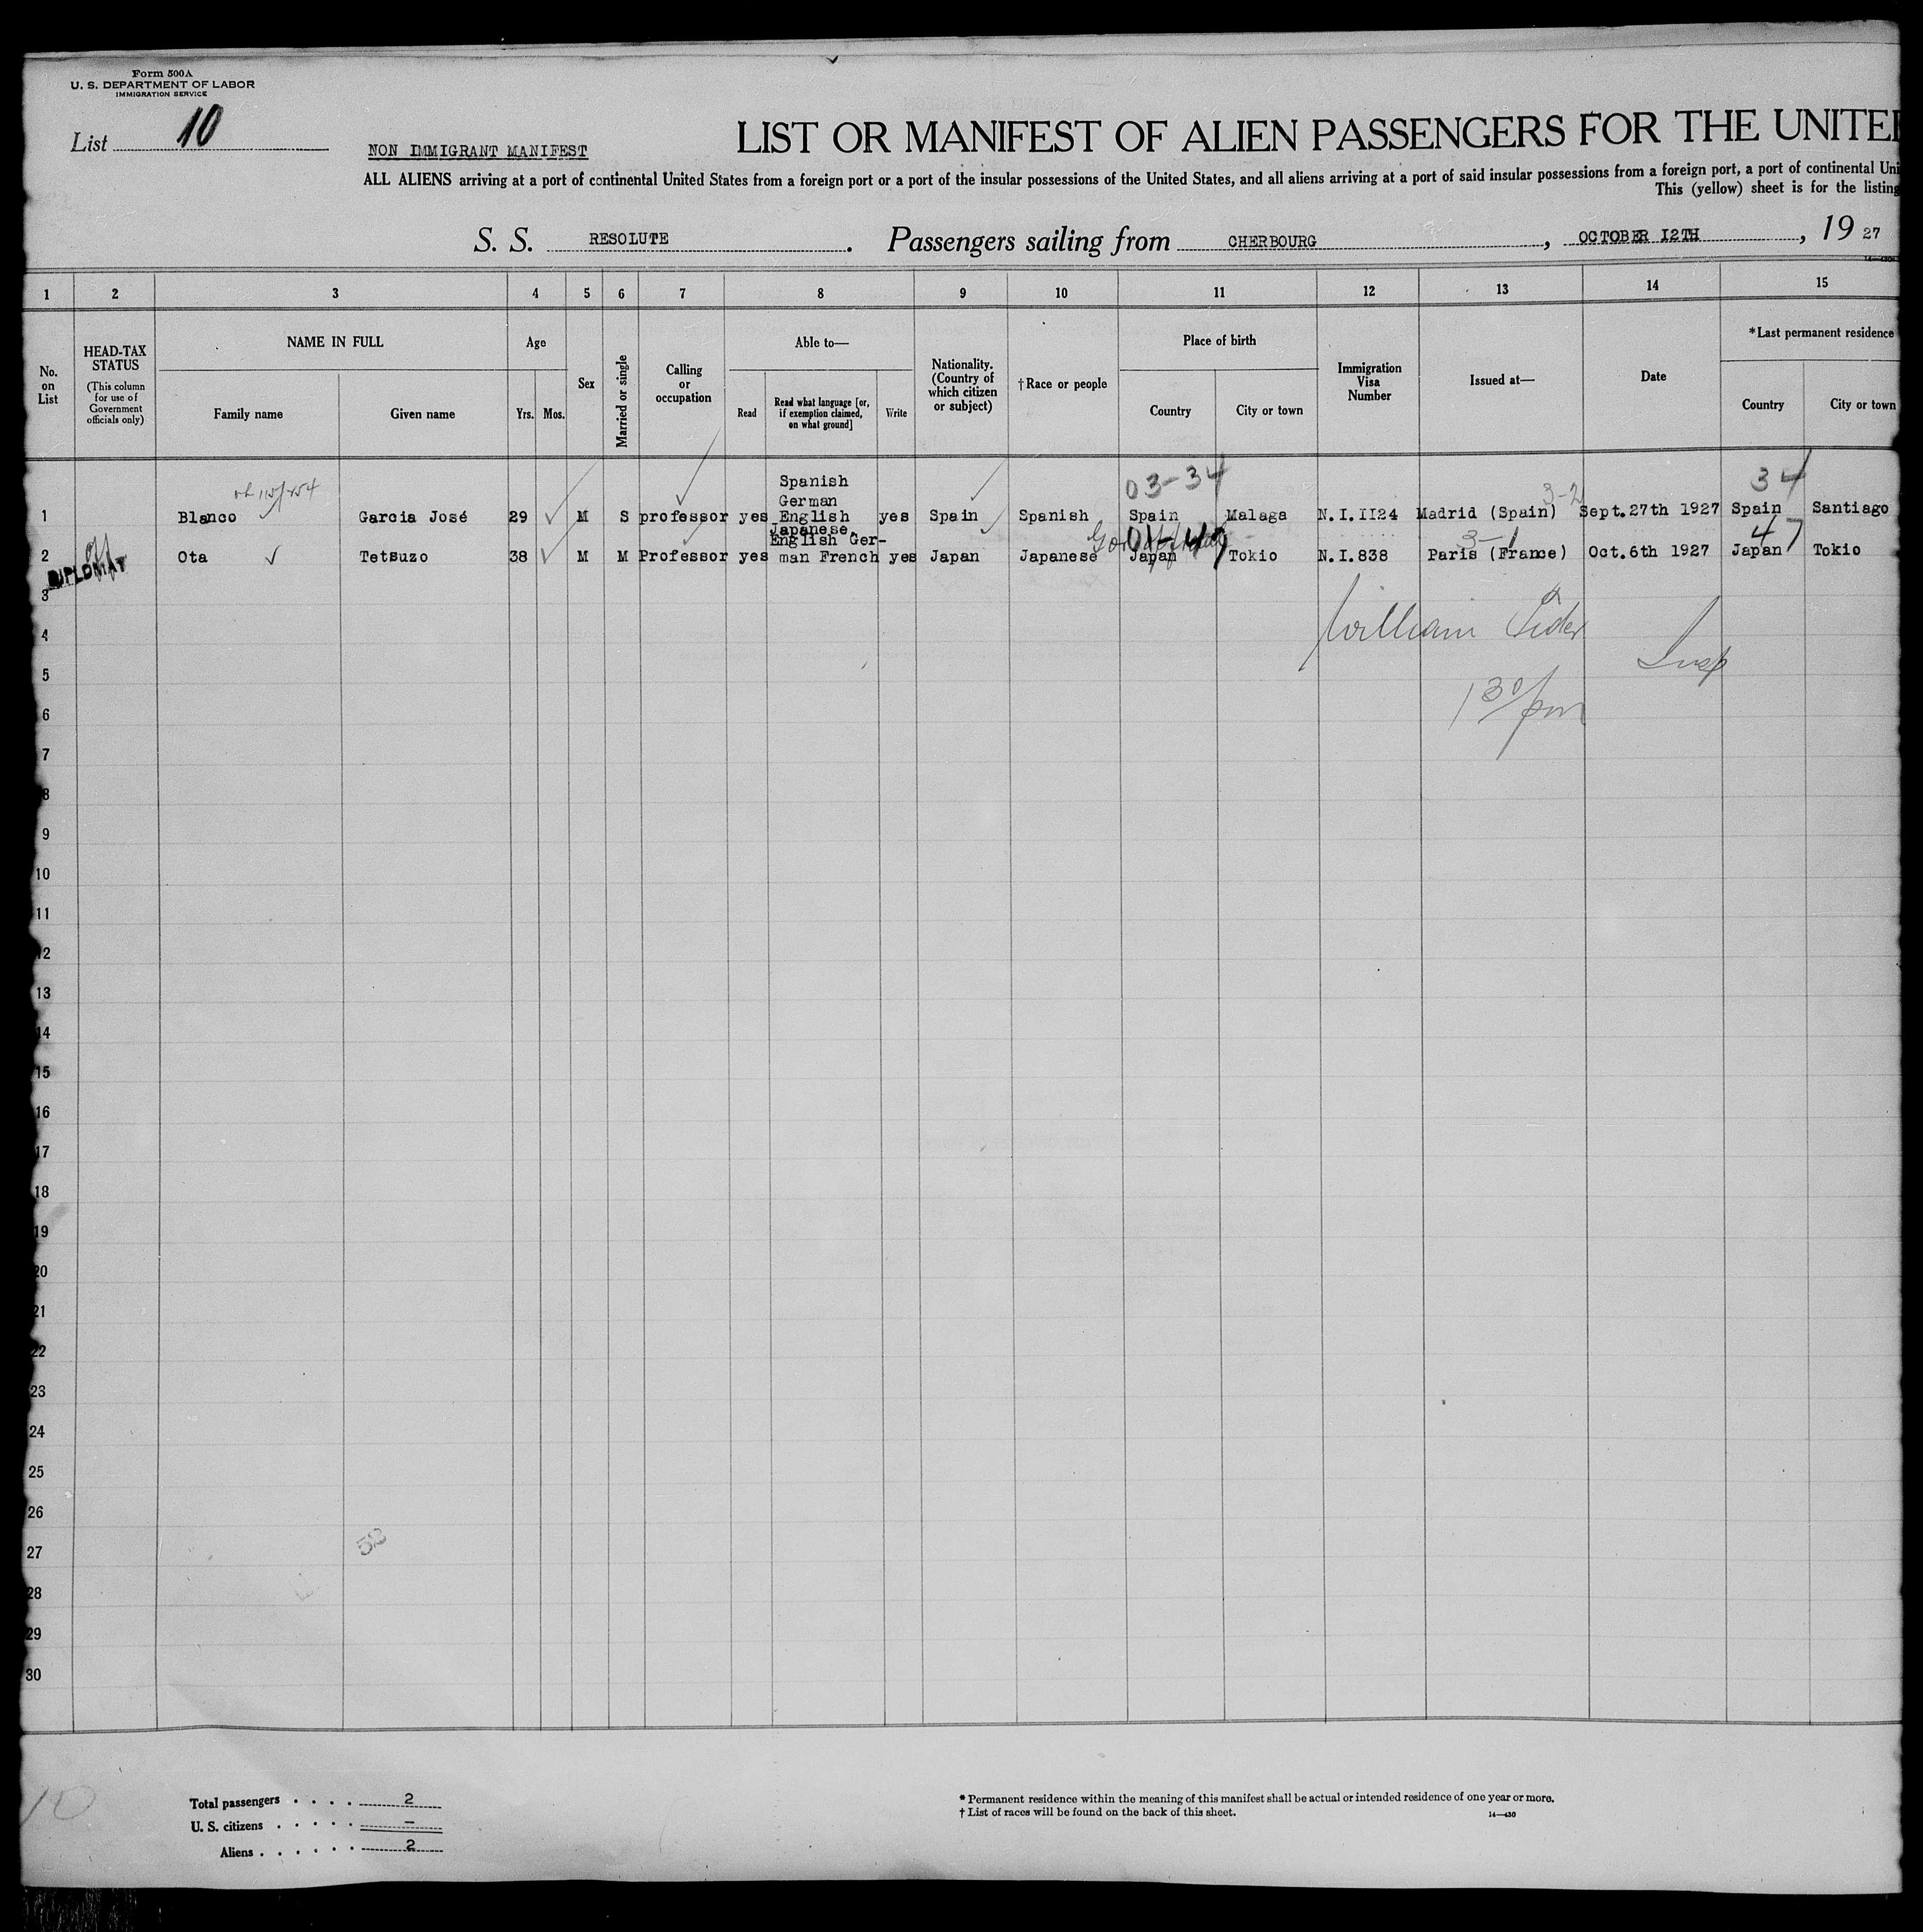 Form 500A
U. S. DEPARTMENT OF LABOR
IMMIGRATION SERVICE
List 10
NON IMMIGRANT MANIFEST
LIST OR MANIFEST OF ALIEN PASSENGERS FOR THE UNITE
ALL ALIENS arriving at a port of continental United States from a foreign port or a port of the insular possessions of the United States, and all aliens arriving at a port of said insular possessions from a foreign port, a port of continental Uni
This (yellow) sheet is for the listing
S. S. RESOLUTE. Passengers sailing from CHERBOURG, OCTOBER I2TH, 19 27
1 2 3 4 5 6 7 8 9 10 11 12 13 14 15
No. on List
HEAD-TAX STATUS
(This column for use of Government officials only)
NAME IN FULL
Family name Given name
Age
Yrs. Mos.
Sex
Married or single
Calling or occupation
Able to—
Read
Read what language [or, if exemption claimed, on what ground]
Write
Nationality. (Country of which citizen or subject)
†Race or people
Place of birth
Country City or town
Immigration Visa Number
Issued at—
Date
*Last permanent residence
Country City or town
03-34 3-2 34
1 Blanco Garcia José 29 M S professor yes Spanish German English yes Spain Spanish Spain Malaga N.I.II24 Madrid (Spain) Sept.27th 1927 Spain Santiago
3-1 47
2 Ota Tetsuzo 38 M M Professor yes Japanese, English German French yes Japan Japanese Japan Tokio N.I.838 Paris (France) Oct.6th 1927 Japan Tokio
DIPLOMAT
3
William
4
Insp
5
1 30/pm
6
7
8
9
10
11
12
13
14
15
16
17
18
19
20
21
22
23
24
25
26
52
27
28
29
30
10
Total passengers . . . . 2
U. S. citizens . . . . . —
Aliens . . . . . . 2
* Permanent residence within the meaning of this manifest shall be actual or intended residence of one year or more.
† List of races will be found on the back of this sheet.
14—430